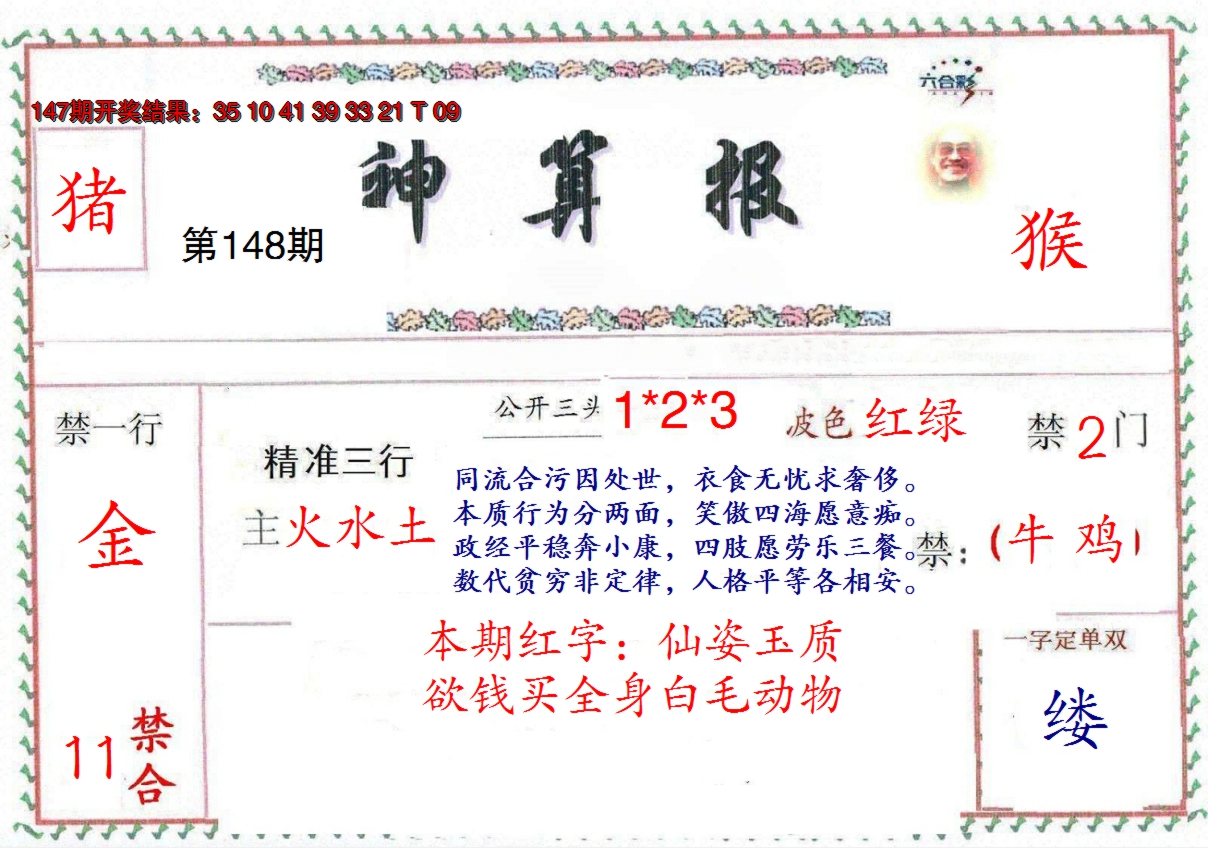 六合彩
147期开奖结果：35 10 41 39 33 21 T 09
神算报
猪
第148期
猴
公开三头 1*2*3
波色 红绿
禁一行
禁2门
精准三行
主火水土
金
同流合污因处世，衣食无忧求奢侈。
本质行为分两面，笑傲四海愿意痴。
政经平稳奔小康，四肢愿劳乐三餐。
数代贫穷非定律，人格平等各相安。
禁：（牛 鸡）
本期红字：仙姿玉质
欲钱买全身白毛动物
一字定单双
缕
11禁合